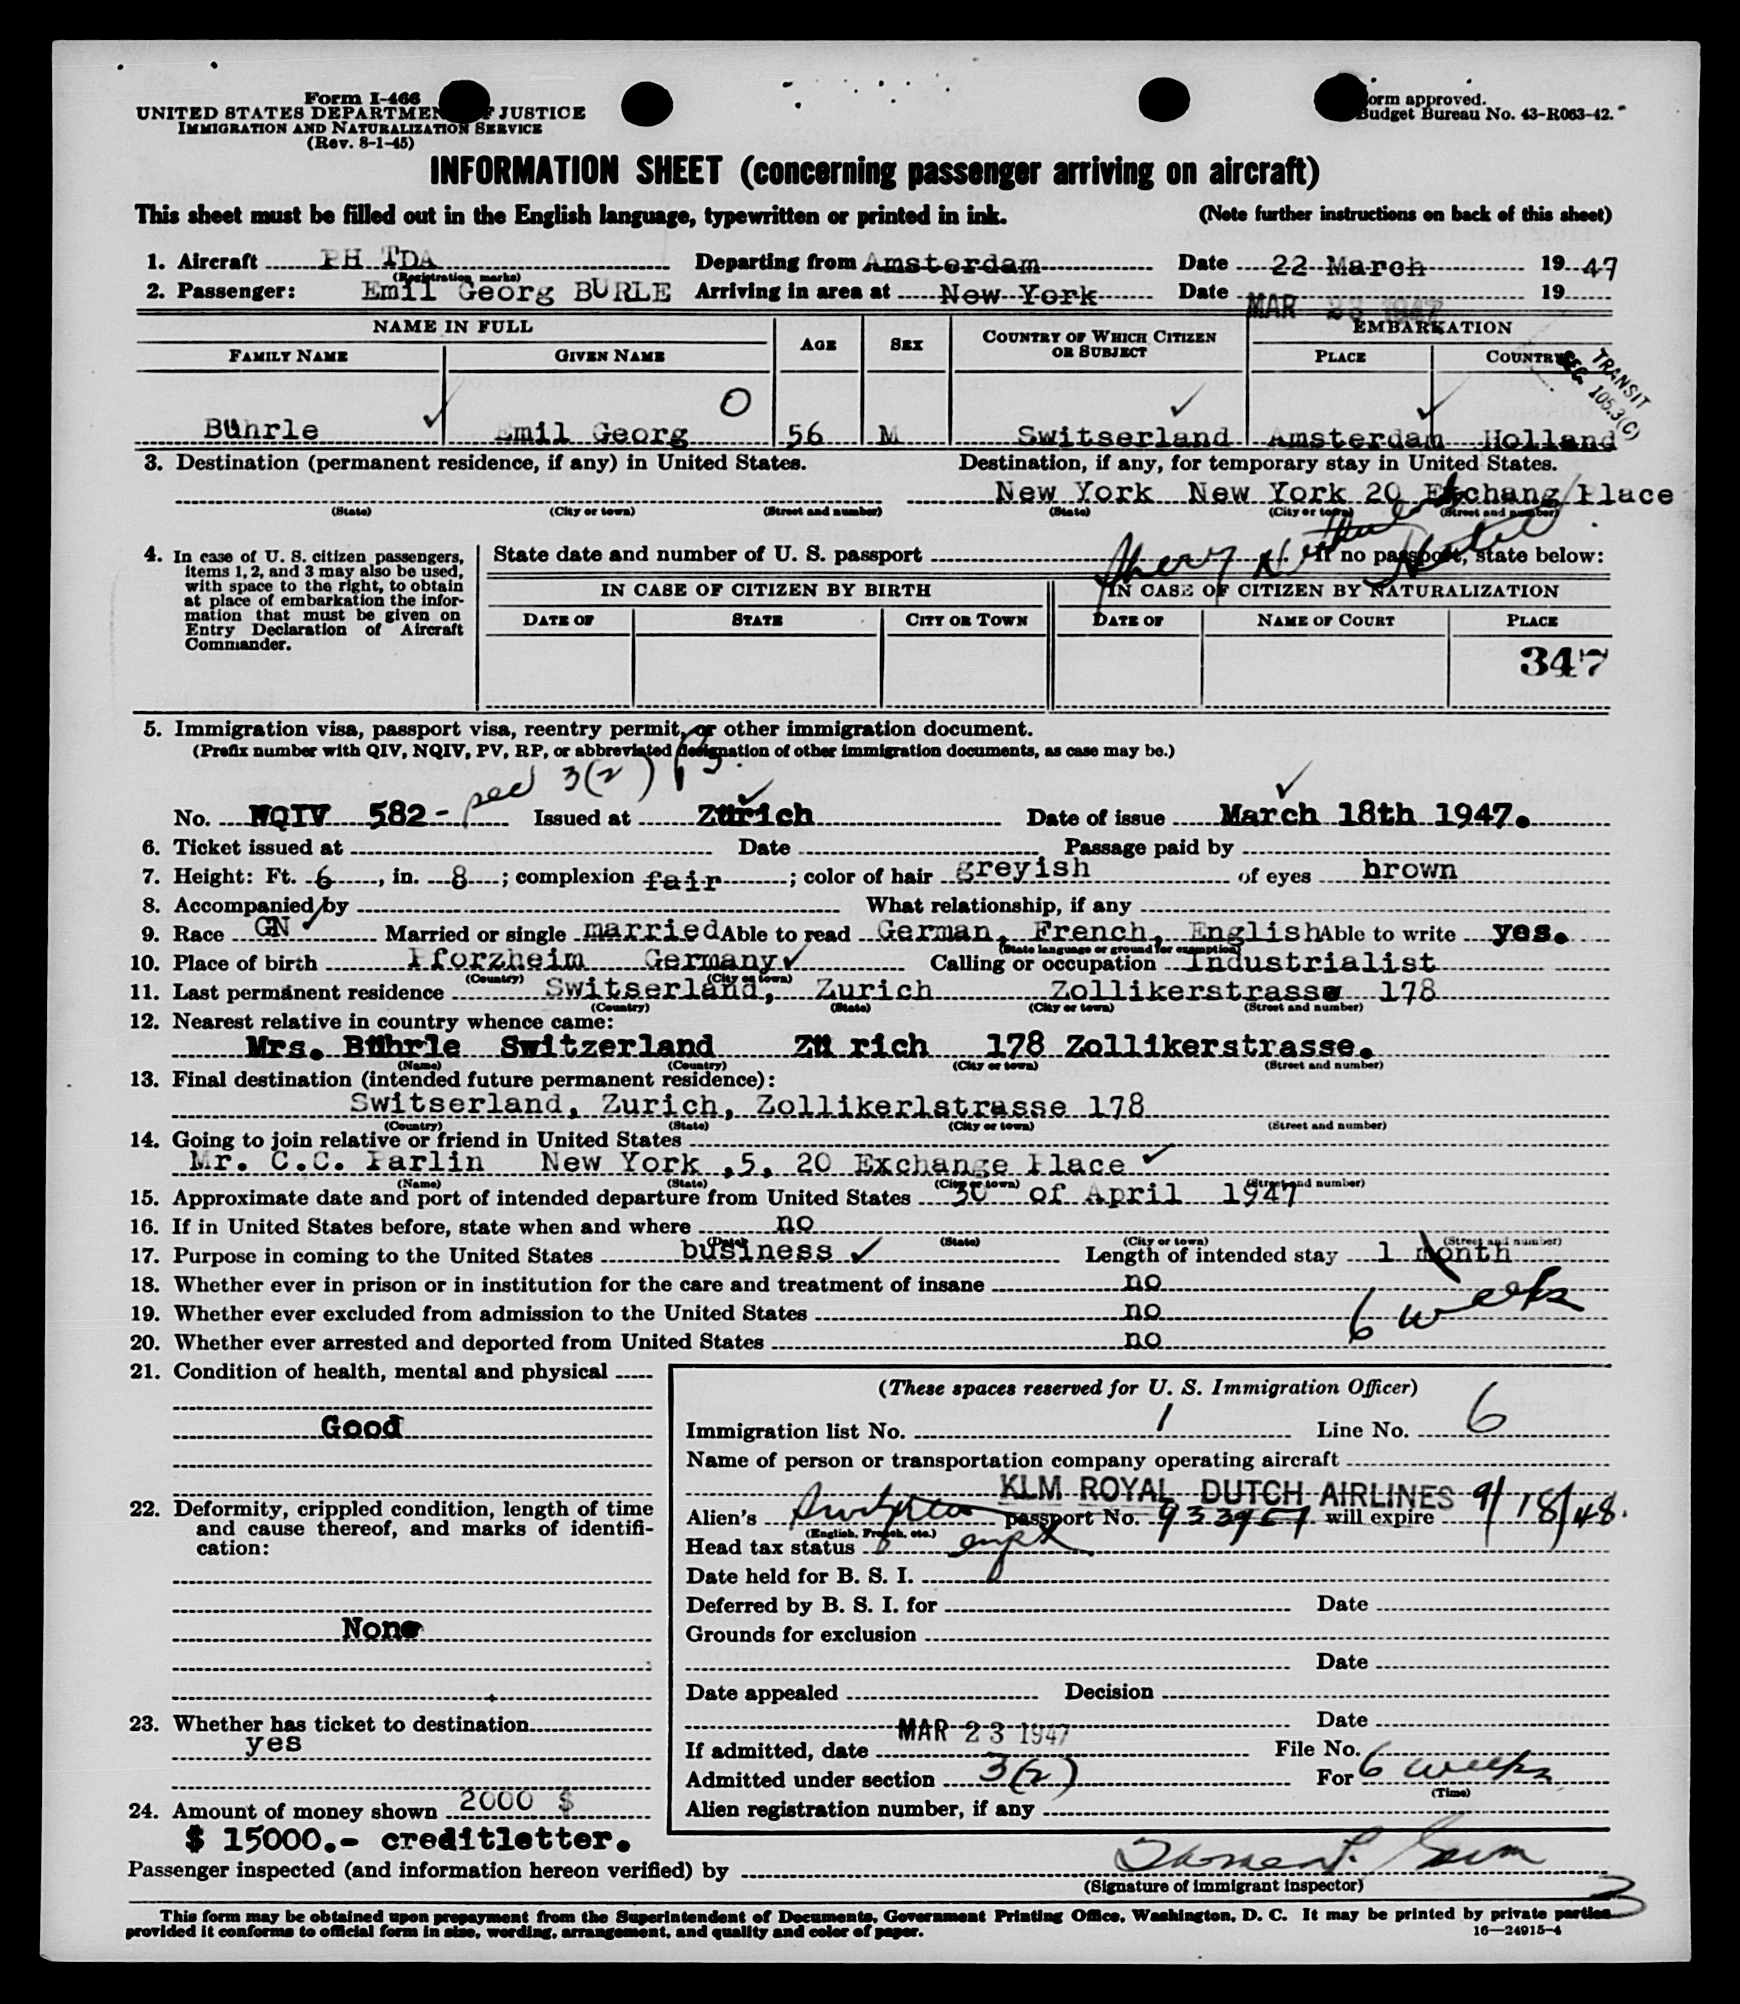 Form I-466
UNITED STATES DEPARTMENT OF JUSTICE
IMMIGRATION AND NATURALIZATION SERVICE
(Rev. 8-1-45)
Form approved.
Budget Bureau No. 43-R063-42.
INFORMATION SHEET (concerning passenger arriving on aircraft)
This sheet must be filled out in the English language, typewritten or printed in ink. (Note further instructions on back of this sheet)
1. Aircraft PH TDA Departing from Amsterdam Date 22 March 19 47
(Registration marks)
2. Passenger: Emil Georg BURLE Arriving in area at New York Date MAR 23 1947 19
NAME IN FULL AGE SEX COUNTRY OF WHICH CITIZEN OR SUBJECT EMBARKATION
FAMILY NAME GIVEN NAME PLACE COUNTRY
TRANSIT
SEC. 105.3(C)
O
Bührle Emil Georg 56 M Switserland Amsterdam Holland
3. Destination (permanent residence, if any) in United States. Destination, if any, for temporary stay in United States.
New York New York 20 Exchang Place
(State) (City or town) (Street and number) (State) (City or town) (Street and number)
Sherry Netherland Hotel
4. In case of U. S. citizen passengers, items 1, 2, and 3 may also be used, with space to the right, to obtain at place of embarkation the information that must be given on Entry Declaration of Aircraft Commander.
State date and number of U. S. passport If no passport, state below:
IN CASE OF CITIZEN BY BIRTH IN CASE OF CITIZEN BY NATURALIZATION
DATE OF STATE CITY OR TOWN DATE OF NAME OF COURT PLACE
347
5. Immigration visa, passport visa, reentry permit, or other immigration document.
(Prefix number with QIV, NQIV, PV, RP, or abbreviated designation of other immigration documents, as case may be.)
sec 3(2)
No. NQIV 582- Issued at Zürich Date of issue March 18th 1947.
6. Ticket issued at Date Passage paid by
7. Height: Ft. 6, in. 8; complexion fair; color of hair greyish of eyes brown
8. Accompanied by What relationship, if any
9. Race GN Married or single married Able to read German, French, English Able to write yes.
(State language or ground for exemption)
10. Place of birth Pforzheim Germany Calling or occupation Industrialist
(Country) (City or town)
11. Last permanent residence Switserland, Zurich Zollikerstrasse 178
(Country) (State) (City or town) (Street and number)
12. Nearest relative in country whence came:
Mrs. Bührle Switzerland Zü rich 178 Zollikerstrasse.
(Name) (Country) (City or town) (Street and number)
13. Final destination (intended future permanent residence):
Switserland, Zurich, Zollikerlstrasse 178
(Country) (State) (City or town) (Street and number)
14. Going to join relative or friend in United States
Mr. C.C. Parlin New York ,5, 20 Exchange Place
(Name) (State) (City or town) (Street and number)
15. Approximate date and port of intended departure from United States 30 of April 1947
16. If in United States before, state when and where no
(Date) (State) (City or town) (Street and number)
17. Purpose in coming to the United States business Length of intended stay 1 month
18. Whether ever in prison or in institution for the care and treatment of insane no
6 weeks
19. Whether ever excluded from admission to the United States no
20. Whether ever arrested and deported from United States no
21. Condition of health, mental and physical
Good
22. Deformity, crippled condition, length of time and cause thereof, and marks of identification:
None
23. Whether has ticket to destination
yes
24. Amount of money shown 2000 $
$ 15000.- creditletter.
(These spaces reserved for U. S. Immigration Officer)
Immigration list No. 1 Line No. 6
Name of person or transportation company operating aircraft
KLM ROYAL DUTCH AIRLINES
Alien's passport No. will expire 9/18/48.
(English, French, etc.)
Head tax status
Date held for B. S. I.
Deferred by B. S. I. for Date
Grounds for exclusion
Date
Date appealed Decision
Date
If admitted, date MAR 23 1947 File No.
Admitted under section 3(2) For 6 weeks
(Time)
Alien registration number, if any
Passenger inspected (and information hereon verified) by
(Signature of immigrant inspector)
3
This form may be obtained upon prepayment from the Superintendent of Documents, Government Printing Office, Washington, D. C. It may be printed by private parties
provided it conforms to official form in size, wording, arrangement, and quality and color of paper. 16—24915-4